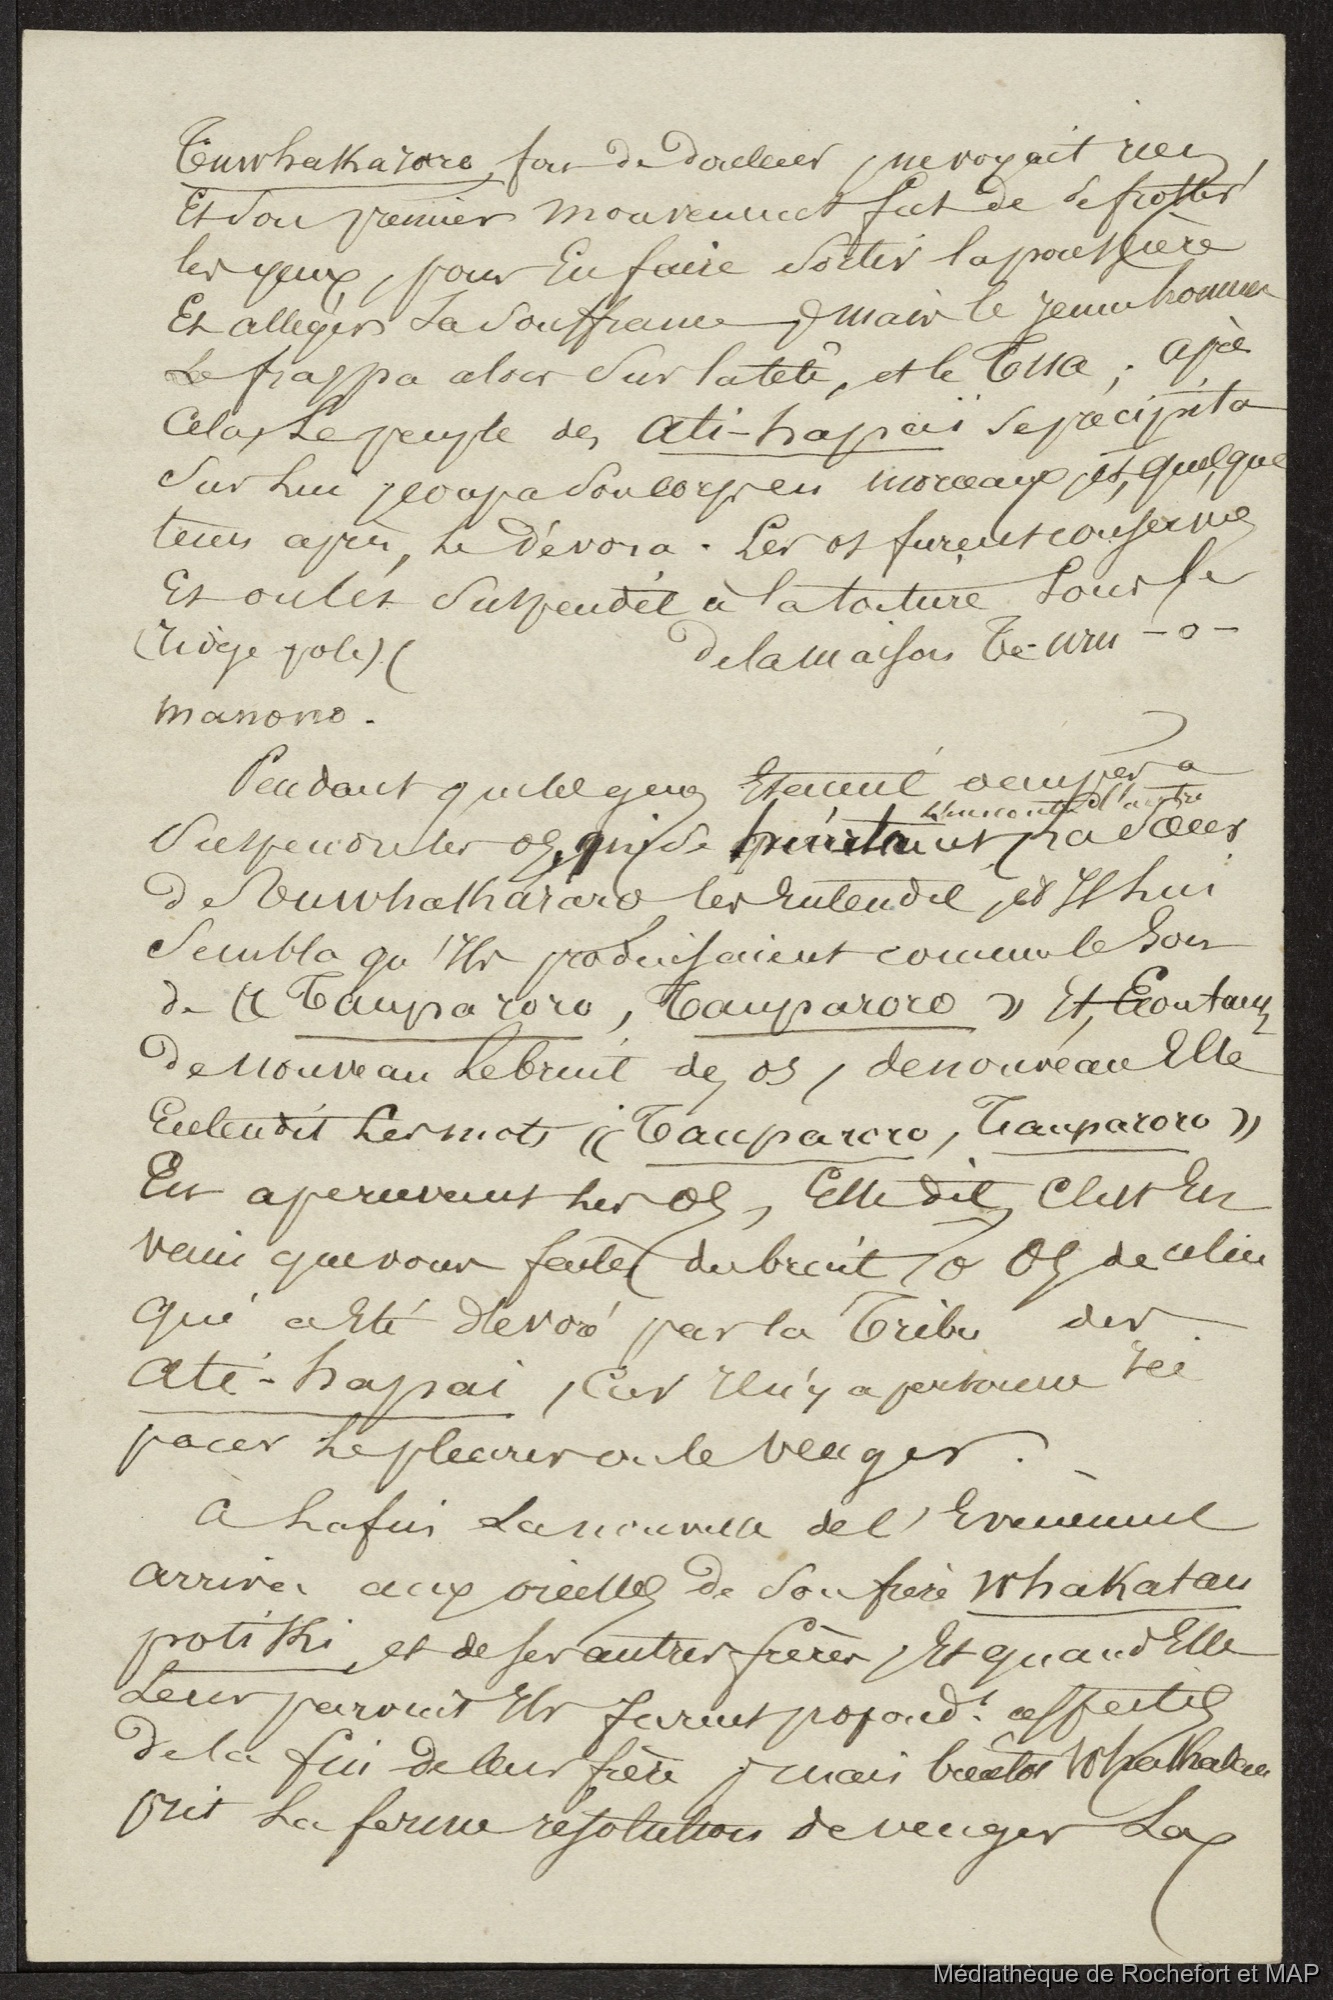 Tuwhakararo, fou de douleur, ne voyait rien,
Et son premier mouvement fut de se frotter
les yeux, pour en faire sortir la poussière
Et alléger sa souffrance, mais le jeune homme
Le frappa alors sur la tête, et le Tua ; après
Cela, Le peuple des Ati-hapaï se précipita
sur lui, coupa son corps en morceaux, et, quelque
tems après, le dévora. Les os furent conservés
Et on les suspendit à la toiture sous le
(ridge pole) (   de la maison Te-uru -o-
manono.
Pendant que les gens étaient occupés à
suspendre les os, qui se heurtaient l'un contre l'autre, la sœur
de Tuwhakararo les entendit, et Il lui
sembla qu'Ils produisaient comme le son
de « Tauparoro, Tauparoro » Et, Ecoutant
de nouveau Le bruit des os, de nouveau Elle
Entendit Les mots « Tauparoro, Tauparoro »
Et apercevant Les Os, Elle dit, C'est En
vain que vous faites du bruit, o Os de celui
qui a été dévoré par la Tribu des
Ati-hapai, Car Il n'y a personne ici
pour Le pleurer ou le venger.
À La fin La nouvelle de l'Evènement
arriva aux oreilles de son frère Whakatau
potiki, et de ses autres frères, Et quand Elle
Leur parvint Ils furent profond.t affectés
de la fin de leur frère, mais bientôt Whakatau
prit La ferme résolution de venger La
Médiathèque de Rochefort et MAP